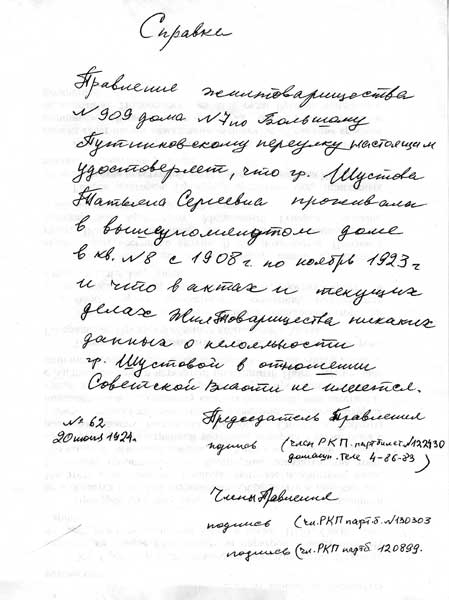 Справка
Правление жилтоварищества
№ 909 дома №7 по Большому
Путинковскому переулку настоящим
удостоверяет, что гр. Шустова
Татьяна Сергеевна проживала
в вышеупомянутом доме
в кв. №8 с 1908 г. по ноябрь 1923 г
и что в актах и текущих
делах ЖилТоварищества никаких
данных о нелояльности
гр. Шустовой в отношении
Советской Власти не имеется.
№ 62
20 июня 1924г.
Председатель Правления
подпись (член РКП. партбилет №122430
домашн. Теле 4-86-83)
Члены Правления
подпись (чл. РКП парт б. №130303
подпись (чл. РКП партб 120899.